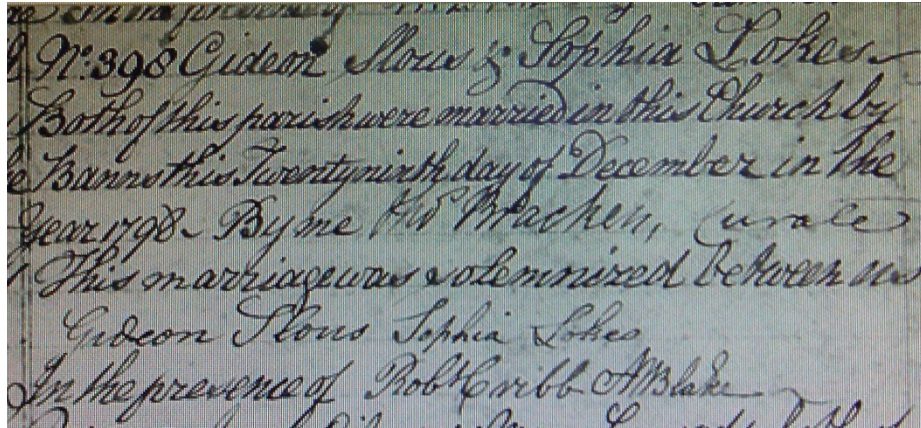 In the presence of
No: 398 Gideon Slous & Sophia Lokes
Both of this parish were married in this Church by
Banns this Twenty ninth day of December in the
Year 1798 By me Bracken, Curate
This marriage was solemnized between us
Gideon Slous Sophia Lokes
In the presence of Robt Cribb A Blake